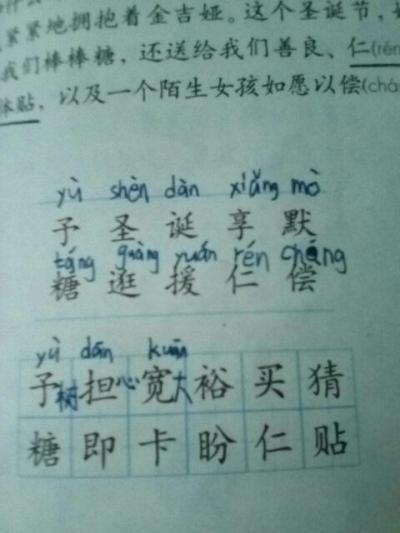 紧紧地拥抱着金吉娅。这个圣诞节，
我们棒棒糖，还送给我们善良、仁(rén
体贴，以及一个陌生女孩如愿以偿(chá
yù shèn dàn xiǎng mò
予 圣 诞 享 默
táng guàng yuán rén cháng
糖 逛 援 仁 偿
yù dān kuān
予树担心宽大裕买猜
糖即卡盼仁贴